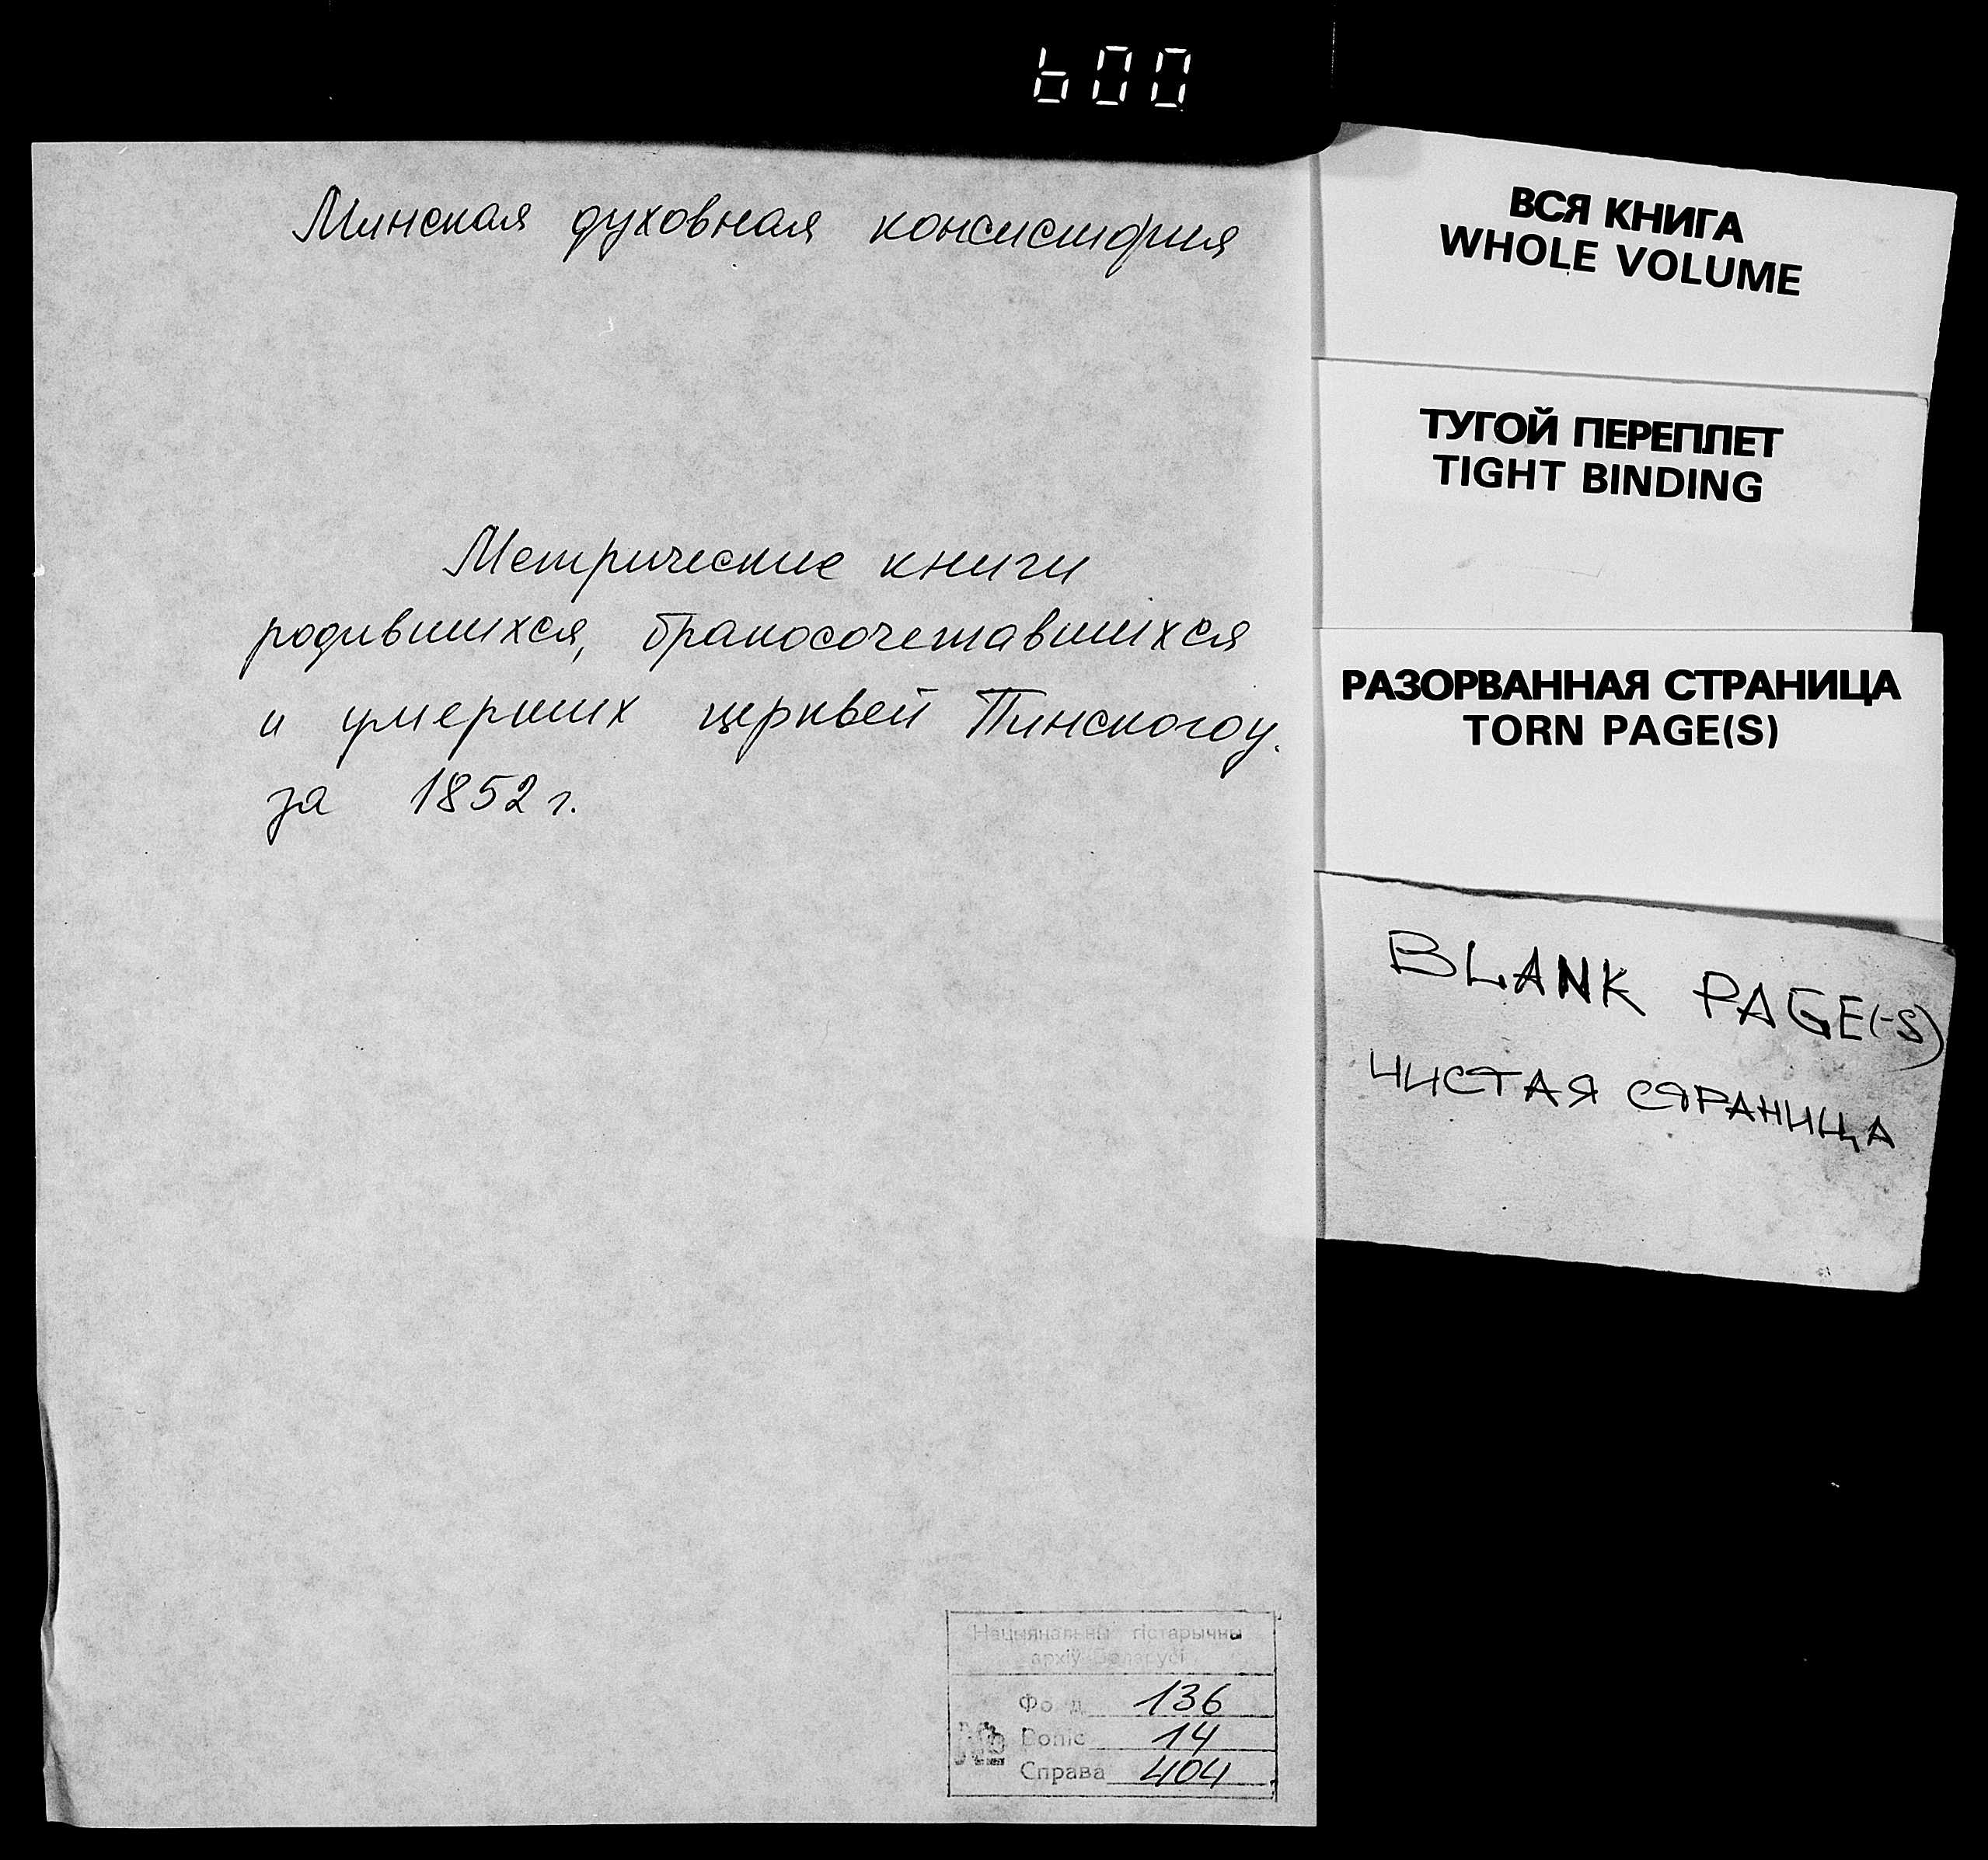 600
Минская духовная консистория
Метрические книги
родившихся, бракосочетавшихся
и умерших церквей Пинского у.
за 1852 г.
Нацыянальны гістарычны
архіў Беларусі
Фонд 136
Вопіс 14
№ Справа 404
ВСЯ КНИГА
WHOLE VOLUME
ТУГОЙ ПЕРЕПЛЕТ
TIGHT BINDING
РАЗОРВАННАЯ СТРАНИЦА
TORN PAGE(S)
BLANK PAGE(-S)
ЧИСТАЯ СТРАНИЦА